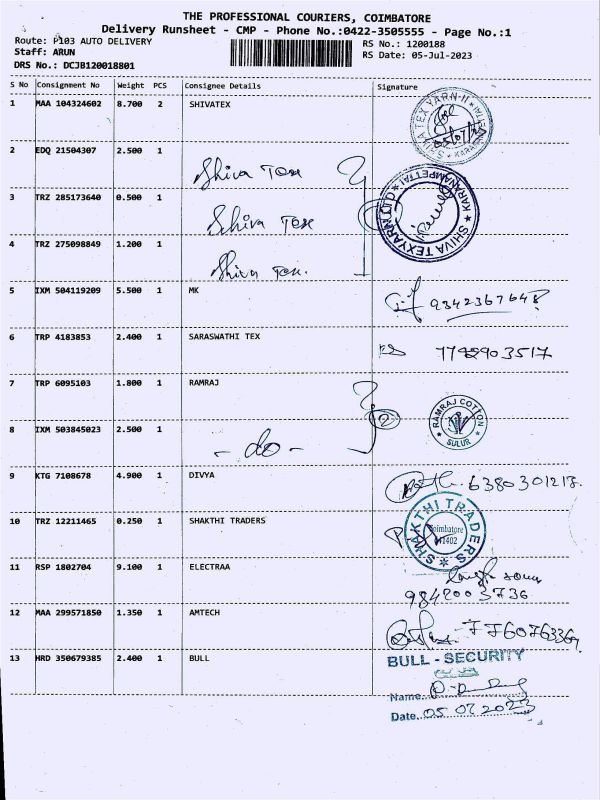 THE PROFESSIONAL COURIERS, COIMBATORE
Delivery Runsheet - CMP - Phone No.:0422-3505555 - Page No.:1
Route: P103 AUTO DELIVERY
Staff: ARUN
DRS No.: DCJB120018801
RS No.: 1200188
RS Date: 05-Jul-2023
S No Consignment No Weight PCS Consignee Details Signature
1 MAA 104324602 8.700 2 SHIVATEX
2 EDQ 21504307 2.500 1 Shiva Tex
3 TRZ 285173640 0.500 1 Shiva Tex
4 TRZ 275098849 1.200 1 Shiva Tex.
SHIVA TEXYARN KARANAMPETTAI
5 IXM 504119209 5.500 1 MK 9342367648
6 TRP 4183853 2.400 1 SARASWATHI TEX
7 TRP 6095103 1.800 1 RAMRAJ
RAMRAJ COTTON
SULUR
8 IXM 503845023 2.500 1 - do - 2
9 KTG 7108678 4.900 1 DIVYA 6380301218.
10 TRZ 12211465 0.250 1 SHAKTHI TRADERS
SHAKTHI TRADERS
Coimbatore
11 RSP 1802704 9.100 1 ELECTRAA
9842003736
12 MAA 299571850 1.350 1 AMTECH
13 HRD 350679385 2.400 1 BULL
BULL - SECURITY
Name
Date 05 07 2023